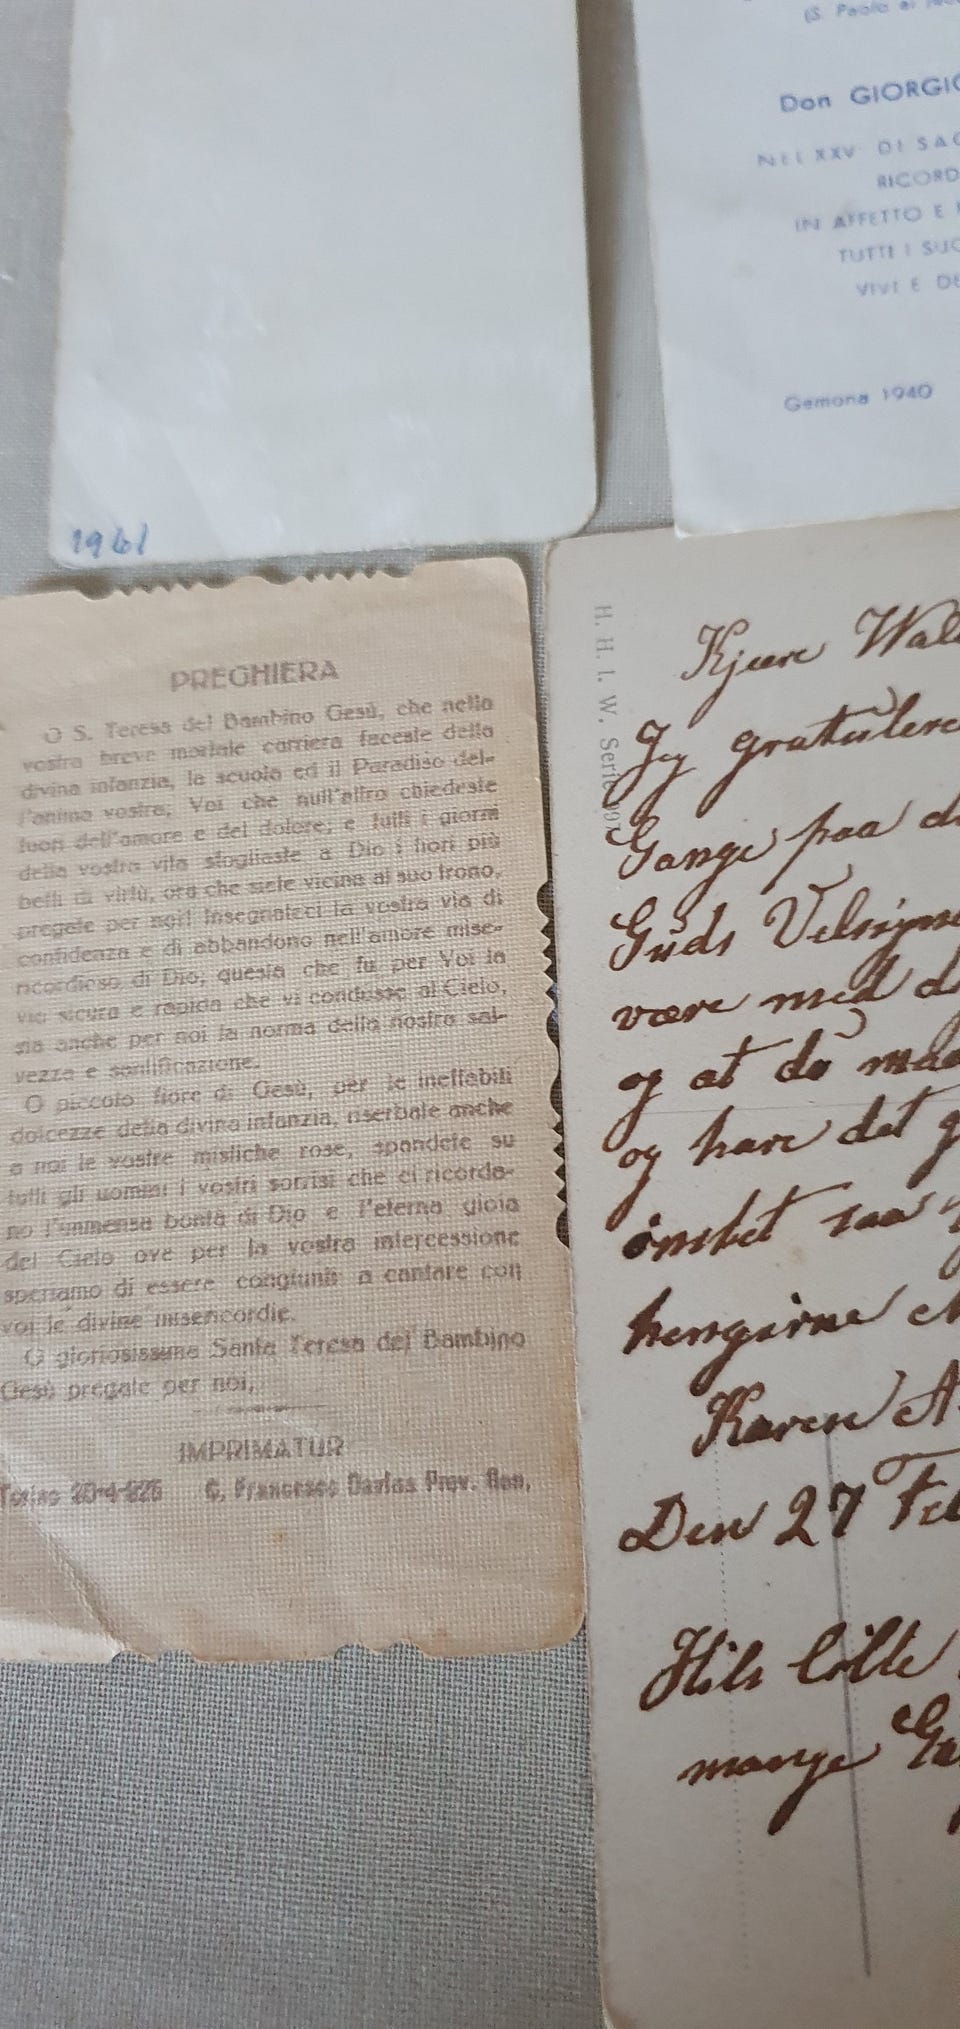 (S. Paolo ai
Don GIORGIO
NEL XXV DI SAC
RICORD
IN AFFETTO E
TUTTI I SUO
VIVI E DE
Gemona 1940
1961
PREGHIERA
O S. Teresa del Bambino Gesú, che nella
vostra breve mortale carriera faceste della
divina infanzia, la scuola ed il Paradiso del-
l'anima vostra; Voi che null'altro chiedeste
fuori dell'amore e del dolore, e tutti i giorni
della vostra vita sfogliaste a Dio i fiori più
belli di virtù, ora che siete vicina al suo trono,
pregate per noi! Insegnateci la vostra via di
confidenza e di abbandono nell'amore mise-
ricordioso di Dio; questa che fu per Voi la
via sicura e rapida che vi condusse al Cielo,
sia anche per noi la norma della nostra sal-
vezza e santificazione.
O piccolo fiore di Gesú, per le ineffabili
dolcezze della divina infanzia, riserbate anche
a noi le vostre mistiche rose, spandete su
tutti gli uomini i vostri sorrisi che ci ricorda-
no l'immensa bontà di Dio e l'eterna gioia
del Cielo ove per la vostra intercessione
speriamo di essere congiunti a cantare con
voi le divine misericordie.
O gloriosissima Santa Teresa del Bambino
Gesù pregate per noi,
IMPRIMATUR
Torino C. Francesco Prov. Gen.
H. H. I. W. Serie
Kjære Wal
Jeg gratulere
Gange paa d
Guds Velsigne
være med d
og at du maa
og have det g
ønsket saa
hengivne
Karen A
Den 27 Feb
Hils lille
mange